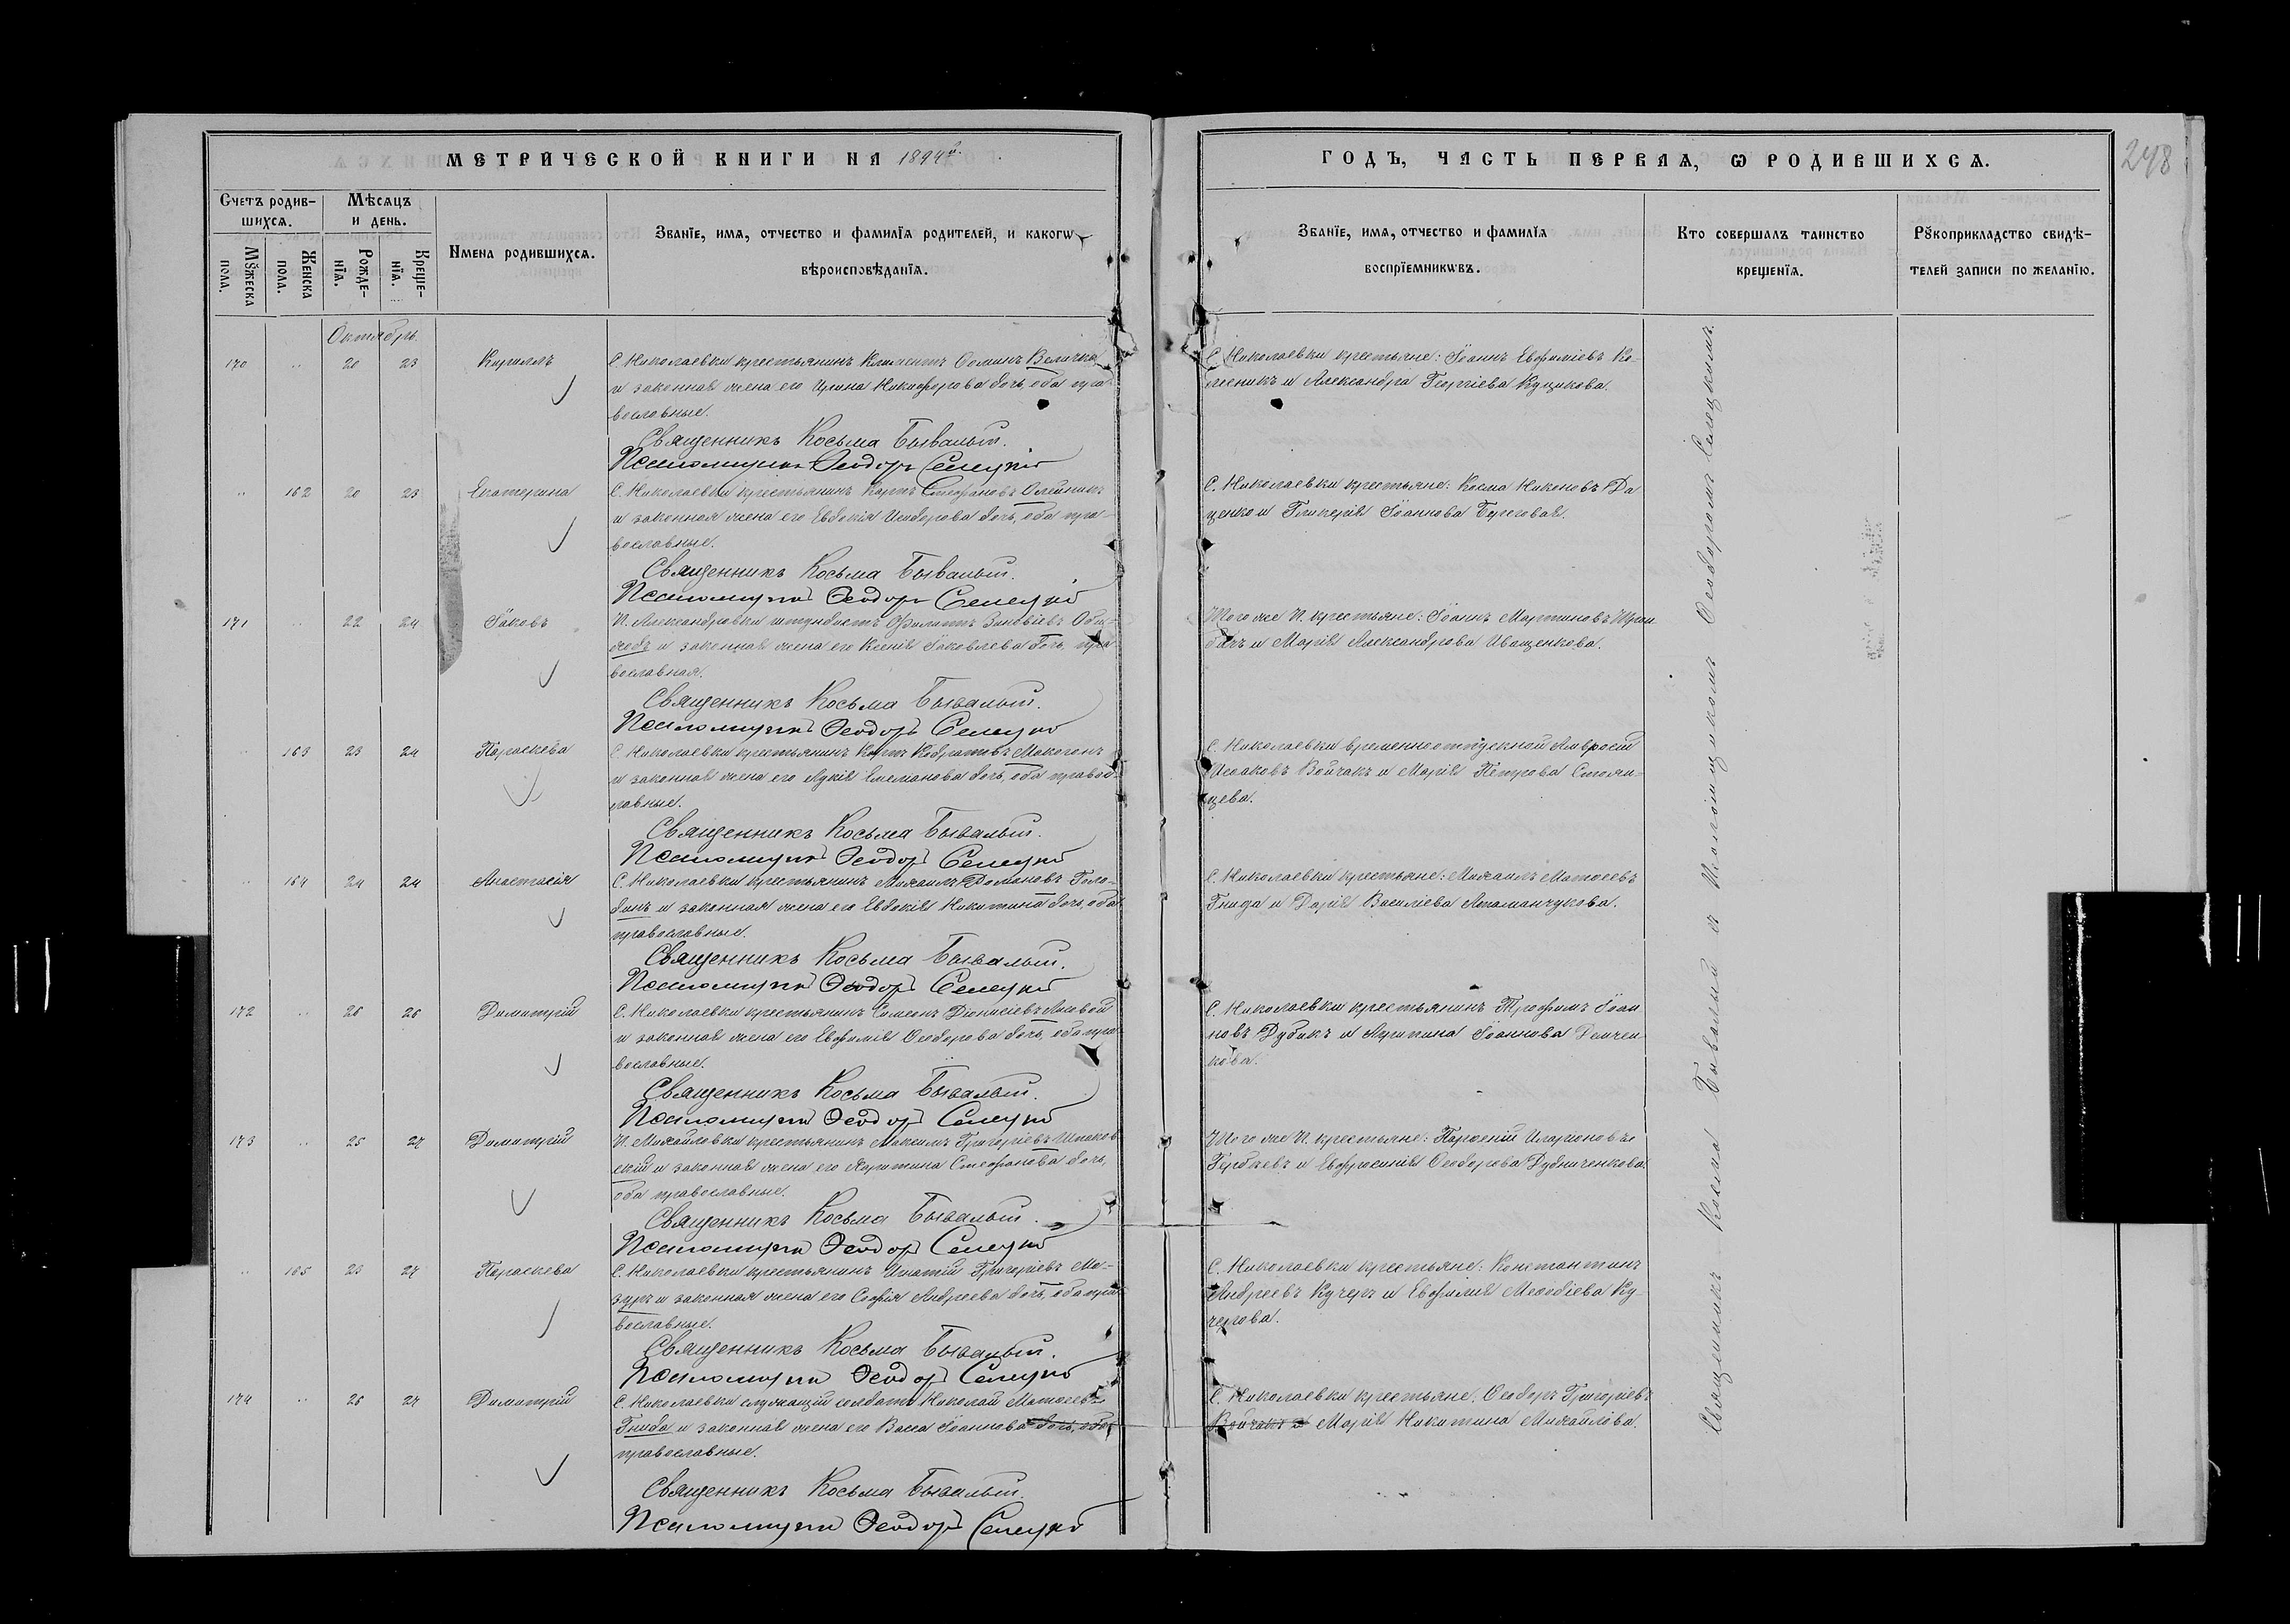 МЕТРИЧЕСКОЙ КНИГИ НА 1894й
ГОДЪ, ЧАСТЬ ПЕРВАЯ, Ѡ РОДИВШИХСѦ.
248
Счетъ родив-
шихсѧ.
Мѣсѧцъ
и день.
Мꙋжеска
пола.
Женска
пола.
Рожде-
нїѧ.
Креще-
нїѧ.
Имена родившихсѧ.
Званїе, имѧ, отчество и фамилїѧ родителей, и какогѡ
вѣроисповѣданїѧ.
Званїе, имѧ, отчество и фамилїѧ
воспрїемникѡвъ.
Кто совершалъ таинство
крещенїѧ.
Рꙋкоприкладство свидѣ-
телей записи по желанїю.
Октябрь.
170 .. 20 23 Кириллъ
С. Николаевки крестьянинъ Климентъ Ѳоминъ Величко
и законная жена его Ирина Никифорова дочь, оба пра
вославные.
Священникъ Косьма Бывалый.
Псаломщикъ Ѳеодоръ Селецкій
С. Николаевки крестьяне: Іоаннъ Евфиміевъ Ко-
лесникъ и Александра Георгіева Куцикова.
.. 162 20 23 Екатерина
С. Николаевки крестьянинъ Карпъ Стефановъ Олейникъ
и законная жена его Евдокія Исидорова дочь, оба пра-
вославные.
Священникъ Косьма Бывалый.
Псаломщикъ Ѳеодоръ Селецкій
С. Николаевки крестьяне: Косма Никоновъ Да
ценко и Гликерія Іоаннова Береговая.
171 .. 22 24 Іаковъ
П. Александровки штундистъ Филатъ Зиновіевъ
и законная жена его Ксенія Іаковлева дочь, пра
вославная.
Священникъ Косьма Бывалый.
Псаломщикъ Ѳеодоръ Селецкій
Того же П. крестьяне: Іоаннъ Мартиновъ
и Марія Александрова Иващенкова.
.. 163 23 24 Параскева
С. Николаевки крестьянинъ Карпъ Кодратовъ Макогонъ
и законная жена его Лукія Емеліанова дочь, оба правос-
лавные.
Священникъ Косьма Бывалый.
Псаломщикъ Ѳеодоръ Селецкій
С. Николаевки временноотпускной Амвросій
Исааковъ Войчакъ и Марія Петрова Стоян-
цева.
.. 164 24 24 Анастасія
С. Николаевки крестьянинъ Михаилъ Домановъ Голо-
динъ и законная жена его Евдокія Никитина дочь, оба
православные.
Священникъ Косьма Бывалый.
Псаломщикъ Ѳеодоръ Селецкій
С. Николаевки крестьяне: Михаилъ Матѳеевъ
Гнида и Дарія Василіева Атаманчукова.
172 .. 26 26 Димитрій
С. Николаевки крестьянинъ Симеонъ Діонисіевъ Лисовой
и законная жена его Евфимія Ѳеодорова дочь, оба пра
вославные.
Священникъ Косьма Бывалый.
Псаломщикъ Ѳеодоръ Селецкій
С. Николаевки крестьянинъ Трофимъ Іоан
новъ Дубикъ и Агрипина Іоаннова Демчен-
кова.
173 .. 25 27 Димитрій
П. Михайловки крестьянинъ Максимъ Григоріевъ Шпаков
скій и законная жена его Харитина Стефанова дочь,
оба православные.
Священникъ Косьма Бывалый.
Псаломщикъ Ѳеодоръ Селецкій
Того же П. крестьяне: Парѳеній Иларіоновъ
и Евфросинія Ѳеодорова Дубниченкова.
.. 165 23 27 Параскева
С. Николаевки крестьянинъ Игнатій Григоріевъ Ма-
зуръ и законная жена его Софія Андреева дочь, оба пра
вославные.
Священникъ Косьма Бывалый.
Псаломщикъ Ѳеодоръ Селецкій
С. Николаевки крестьяне: Константинъ
Андреевъ Кучеръ и Евфимія Меѳодіева Ку-
черова.
174 .. 26 27 Димитрій
С. Николаевки служащій солдатъ Николай Матѳеевъ
Гнида и законная жена его Васса Іоаннова дочь, оба
православные.
Священникъ Косьма Бывалый.
Псаломщикъ Ѳеодоръ Селецкій
С. Николаевки крестьяне: Ѳеодоръ Григоріевъ
Войчакъ и Марія Никитина Михайлова.
Священникъ Косма Бывалый и Псаломщикомъ Ѳеодоромъ Селецкимъ.